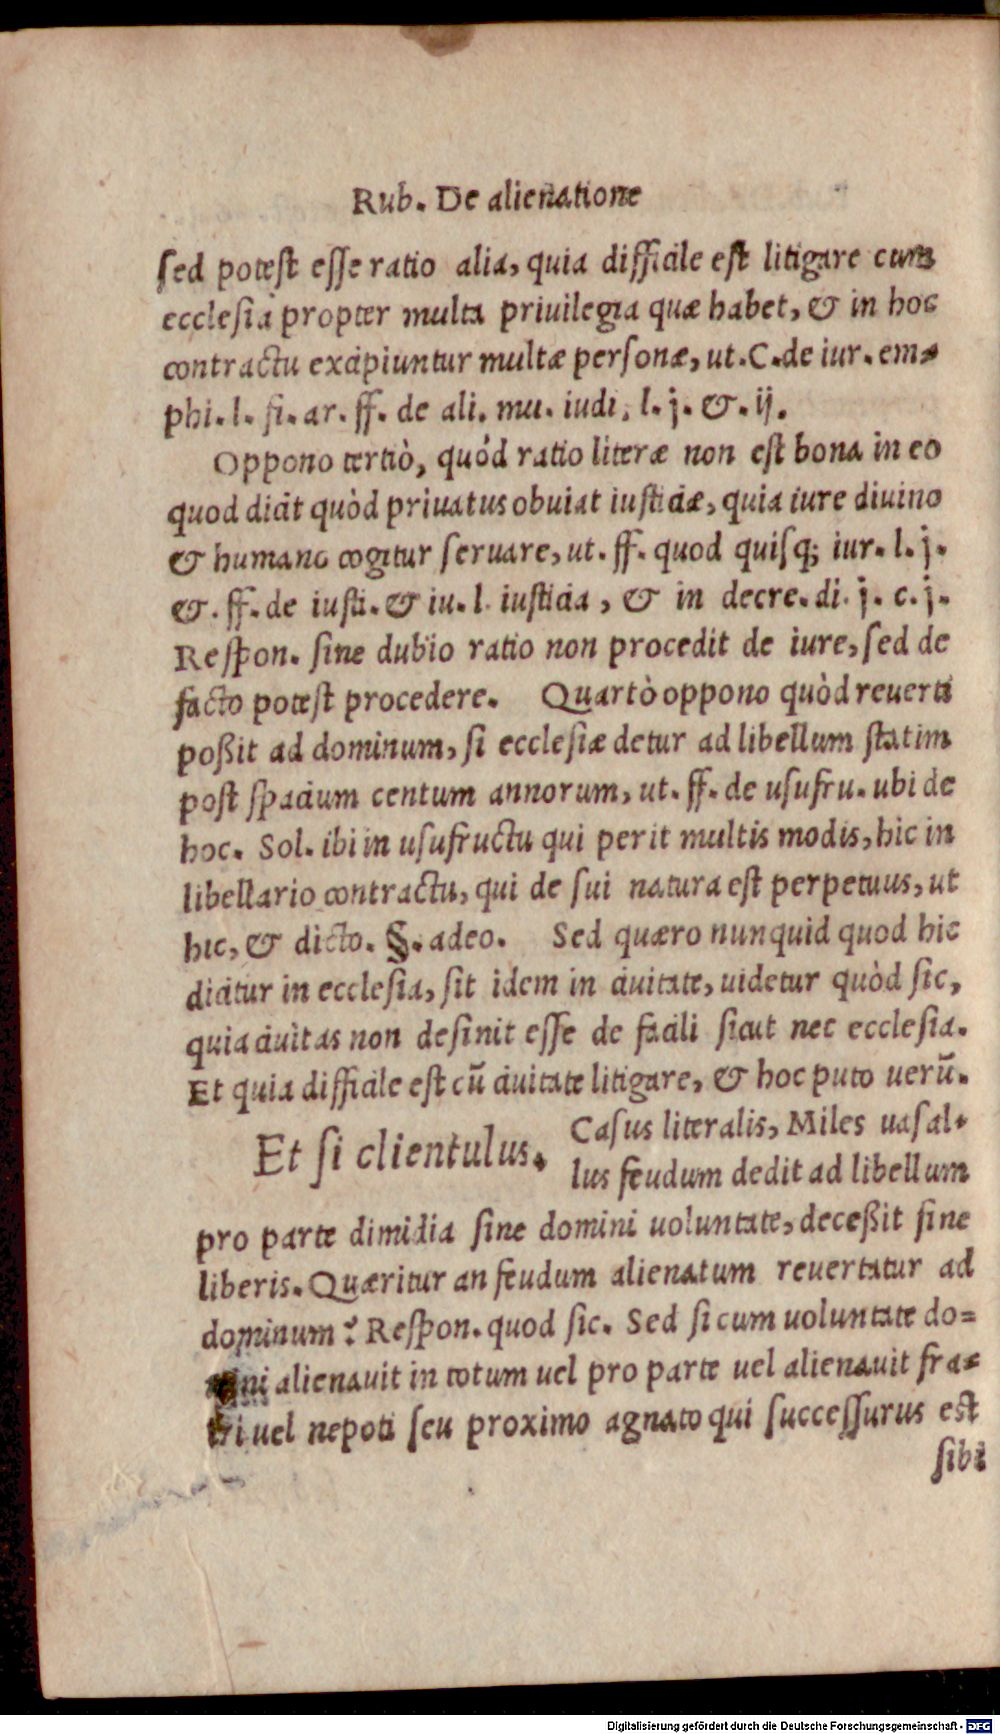 Rub. De alienatione
sed potest esse ratio alia, quia difficile est litigare cum
ecclesia propter multa priuilegia quæ habet, & in hoc
contractu excipiuntur multæ personæ, ut. C. de iur. em-
phi. l. fi. ar. ff. de ali. mu. iudi, l. j. &. ij.
Oppono tertiò, quód ratio literæ non est bona in eo
quod dicit quòd priuatus obuiat iusticiæ, quia iure diuino
& humano cogitur seruare, ut. ff. quod quisq; iur. l. j.
&. ff. de iusti. & iu. l. iusticia, & in decre. di. j. c. j.
Respon. sine dubio ratio non procedit de iure, sed de
facto potest procedere. Quartò oppono quòd reuerti
poßit ad dominum, si ecclesiæ detur ad libellum statim
post spacium centum annorum, ut. ff. de usufru. ubi de
hoc. Sol. ibi in usufructu qui perit multis modis, hic in
libellario contractu, qui de sui natura est perpetuus, ut
hic, & dicto. §. adeo. Sed quæro nunquid quod hic
dicitur in ecclesia, sit idem in ciuitate, uidetur quòd sic,
quia ciuitas non desinit esse de facili sicut nec ecclesia.
Et quia difficile est cū ciuitate litigare, & hoc puto uerū.
Et si clientulus. Casus literalis, Miles uasal-
lus feudum dedit ad libellum
pro parte dimidia sine domini uoluntate, deceßit sine
liberis. Quæritur an feudum alienatum reuertatur ad
dominum? Respon. quod sic. Sed si cum uoluntate do=
mini alienauit in totum uel pro parte uel alienauit fra-
tri uel nepoti seu proximo agnato qui successurus est
sibi
Digitalisierung gefördert durch die Deutsche Forschungsgemeinschaft - DFG